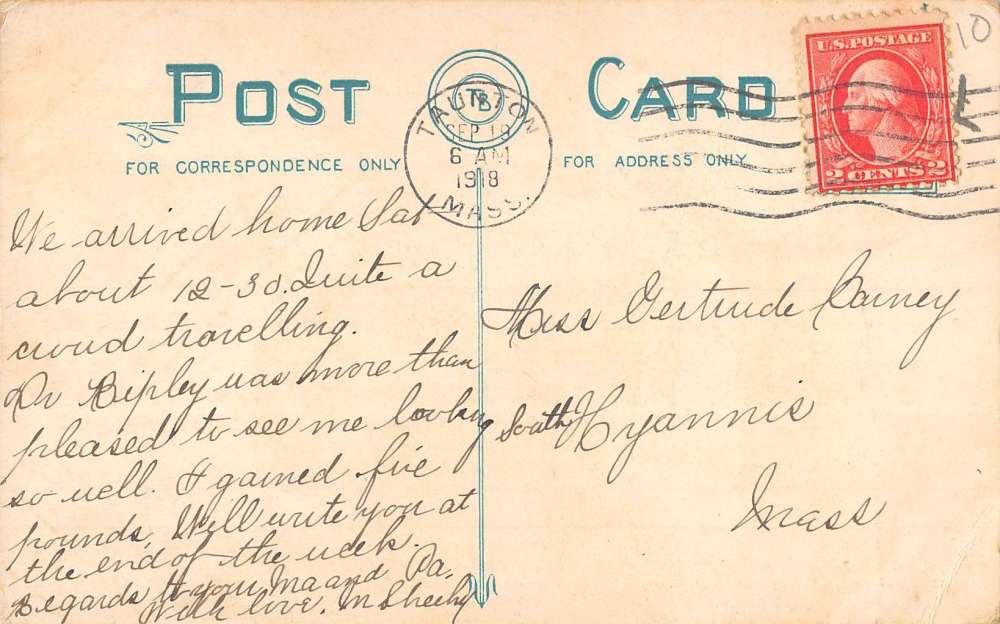 POST CARD
TB
FOR CORRESPONDENCE ONLY
FOR ADDRESS ONLY
TAUNTON
SEP 19
6 AM
1918
MASS.
U.S. POSTAGE
2 CENTS 2
10
We arrived home Sat
about 12-30. Quite a
crowd travelling.
Dr Ripley was more than
pleased to see me looking
so well. I gained five
pounds, Will write you at
the end of the week.
Regards to your Ma and Pa.
With love, M Sheehy
Miss Gertrude Barney
South Hyannis
Mass